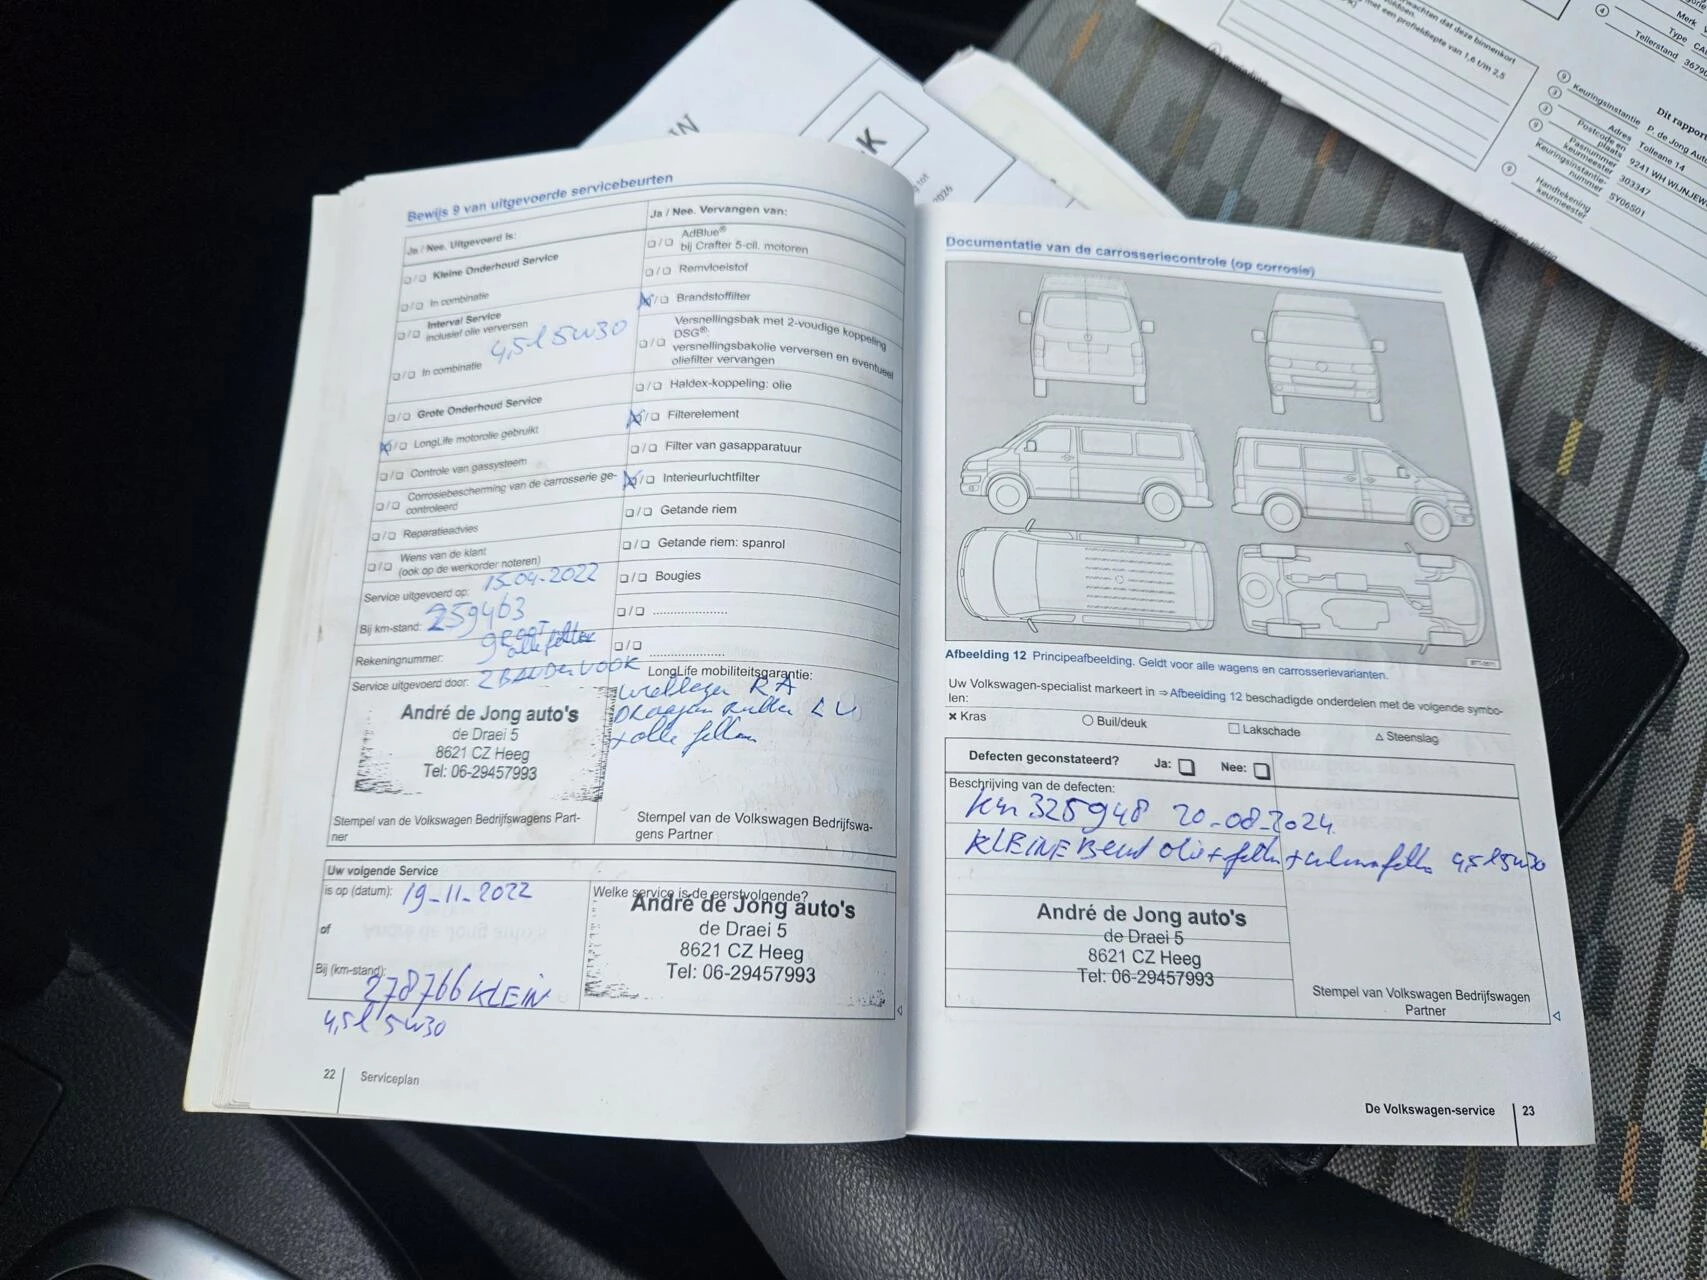 Bewijs 9 van uitgevoerde servicebeurten
Ja / Nee. Uitgevoerd is:
Kleine Onderhoud Service
In combinatie
Interval Service
inclusief olie verversen
4,5l 5W30
In combinatie
Grote Onderhoud Service
LongLife motorolie gebruikt
Controle van gassysteem
Corrosiebescherming van de carrosserie ge-
controleerd
Reparatieadvies
Wens van de klant
(ook op de werkorder noteren)
Service uitgevoerd op: 15-04-2022
Bij km-stand: 259463
Rekeningnummer: groot
alle filters
Service uitgevoerd door: 2 BANDEN VOOR
André de Jong auto's
de Draei 5
8621 CZ Heeg
Tel: 06-29457993
Stempel van de Volkswagen Bedrijfswagens Part-
ner
Ja / Nee. Vervangen van:
AdBlue®
bij Crafter 5-cil. motoren
Remvloeistof
Brandstoffilter
Versnellingsbak met 2-voudige koppeling
DSG®:
versnellingsbakolie verversen en eventueel
oliefilter vervangen
Haldex-koppeling: olie
Filterelement
Filter van gasapparatuur
Interieurluchtfilter
Getande riem
Getande riem: spanrol
Bougies
LongLife mobiliteitsgarantie:
wiellager RA
Draagarm rubber LV
+ alle filters
Stempel van de Volkswagen Bedrijfswa-
gens Partner
Uw volgende Service
is op (datum): 19-11-2022
of
Bij (km-stand):
278766 KLEIN
4,5l 5w30
Welke service is de eerstvolgende?
André de Jong auto's
de Draei 5
8621 CZ Heeg
Tel: 06-29457993
22 Serviceplan
Documentatie van de carrosseriecontrole (op corrosie)
Afbeelding 12 Principeafbeelding. Geldt voor alle wagens en carrosserievarianten.
Uw Volkswagen-specialist markeert in ⇒ Afbeelding 12 beschadigde onderdelen met de volgende symbo-
len:
× Kras Buil/deuk Lakschade Steenslag
Defecten geconstateerd? Ja: Nee:
Beschrijving van de defecten:
km 325948 20-08-2024
KLEINE Beurt olie + filter + interieurfilter 4,5l 5w30
André de Jong auto's
de Draei 5
8621 CZ Heeg
Tel: 06-29457993
Stempel van Volkswagen Bedrijfswagen
Partner
De Volkswagen-service 23
verwachten dat deze binnenkort
voldoen.
met een profieldiepte van 1,6 t/m 2,5
Merk
Type CA
Tellerstand 3679
Dit rapport
Keuringsinstantie P. de Jong Aut
Adres Tolleane 14
Postcode en
plaats 9241 WH WIJNJEW
Pasnummer
keurmeester 303347
Keuringsinstantie-
nummer SY06S01
Handtekening
keurmeester